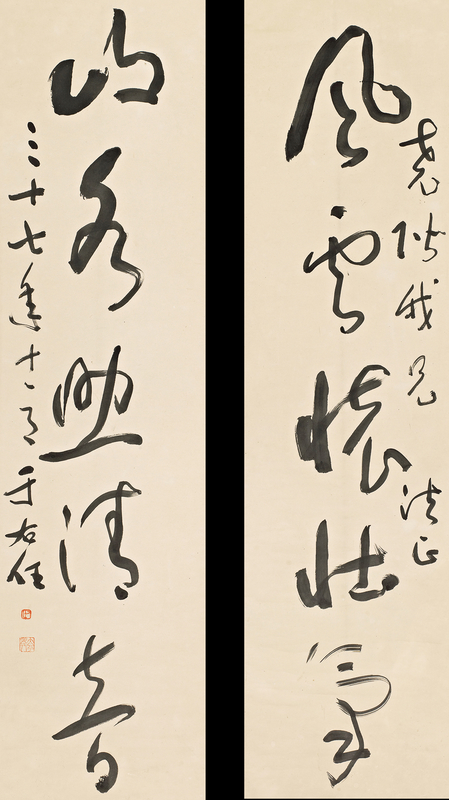 堯階我兄 法正
風雲懷壯氣
山水清音
三十七年十一月 于右任